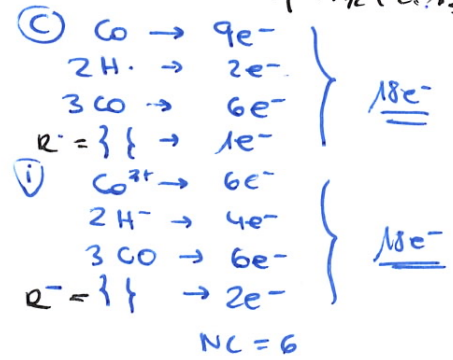 Ⓒ Co → 9e⁻
2 H· → 2e⁻
3 CO → 6e⁻ 18e⁻
R· = } { → 1e⁻
ⓘ Co³⁺ → 6e⁻
2 H⁻ → 4e⁻
3 CO → 6e⁻ 18e⁻
R⁻ = } { → 2e⁻
NC = 6